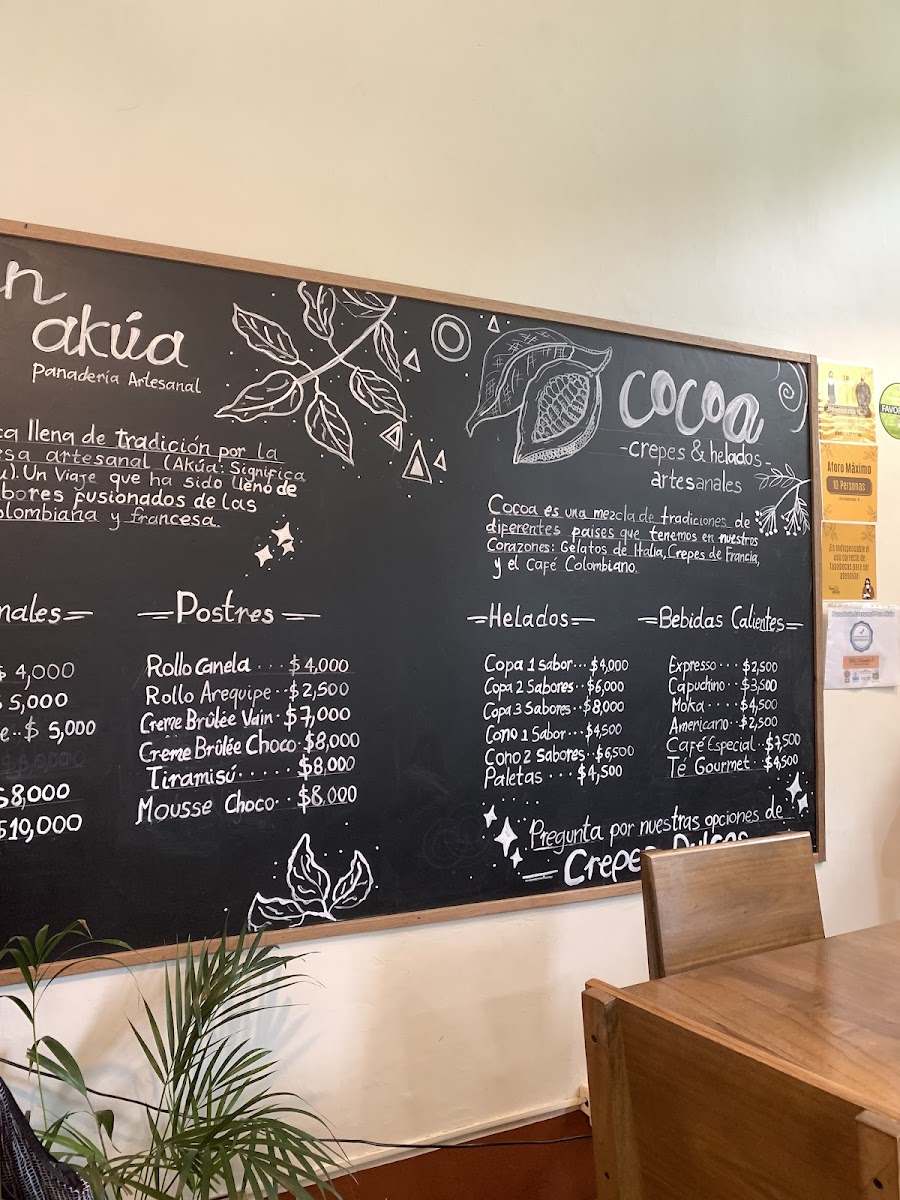 n
akúa
Panadería Artesanal
ca llena de tradición por la
esa artesanal (Akúa: Significa
u). Un Viaje que ha sido lleno de
bores fusionados de las
olombiana y francesa.
nales
$ 4,000
$ 5,000
e..$ 5,000
$8,000
$10,000
Postres
Rollo Canela ... $4,000
Rollo Arequipe..$2,500
Creme Brûlée Vain.$7,000
Creme Brûlée Choco.$8,000
Tiramisú......$8,000
Mousse Choco..$8,000
cocoa
-crepes & helados-
artesanales
Cocoa es una mezcla de tradiciones de
diferentes paises que tenemos en nuestros
Corazones: Gelatos de Italia, Crepes de Francia,
y el Café Colombiano.
Helados
Copa 1 sabor...$4,000
Copa 2 Sabores..$6,000
Copa 3 Sabores..$8,000
Cono 1 Sabor...$4,500
Cono 2 Sabores..$6,500
Paletas ...$4,500
Bebidas Calientes
Expresso ... $2,500
Capuchino ..$3,500
Moka ....$4,500
Americano..$2,500
Café Especial..$7,500
Té Gourmet ..$4,500
Pregunta por nuestras opciones de
Crepes Dulces
Aforo Máximo
10 Personas
Es indispensable el
uso correcto de
tapabocas para ser
atendido!
FAVOR